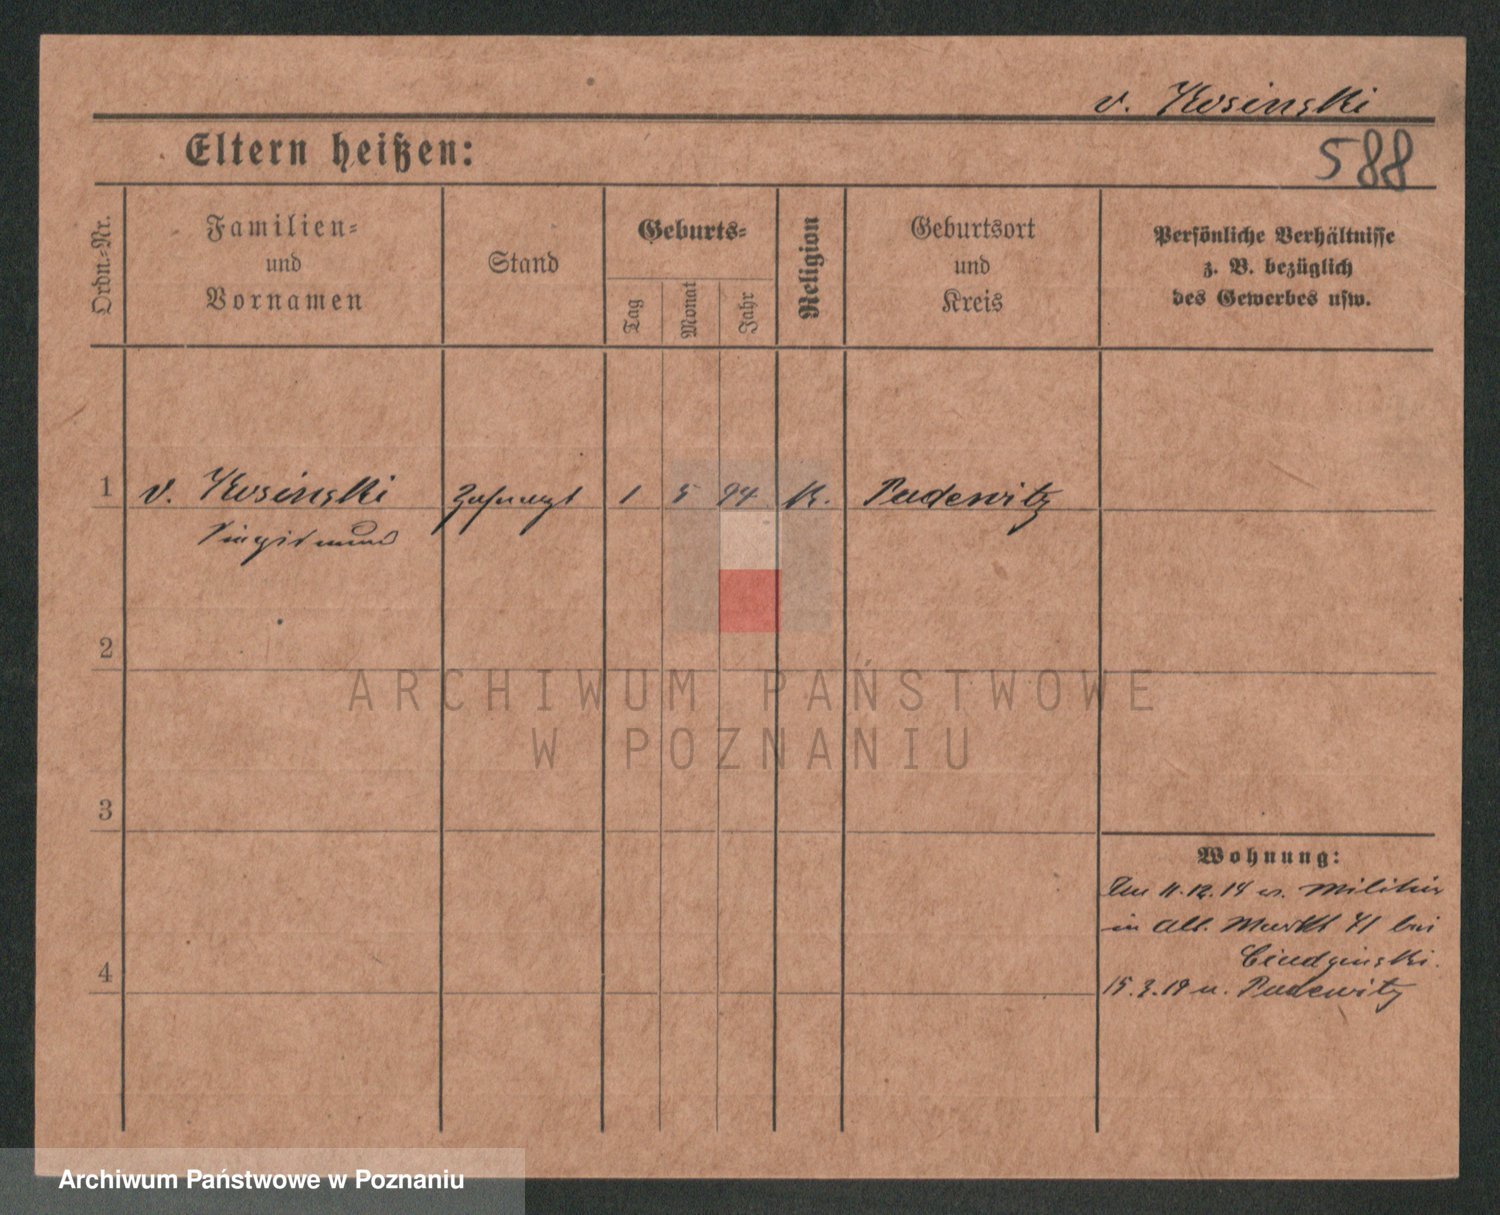 v. Kosinski
Eltern heißen:
588
Ordn.-Nr.
Familien-
und
Vornamen
Stand
Geburts-
Tag
Monat
Jahr
Religion
Geburtsort
und
Kreis
Persönliche Verhältnisse
z. B. bezüglich
des Gewerbes usw.
1
v. Kosinski
Zahnarzt
1
5
94
K.
Pudewitz
Siegismund
2
ARCHIWUM PAŃSTWOWE
W POZNANIU
3
Wohnung:
11.12.18 v. Militär
in Alt. Markt 41 bei
4
15.3.19 n. Pudewitz
Archiwum Państwowe w Poznaniu